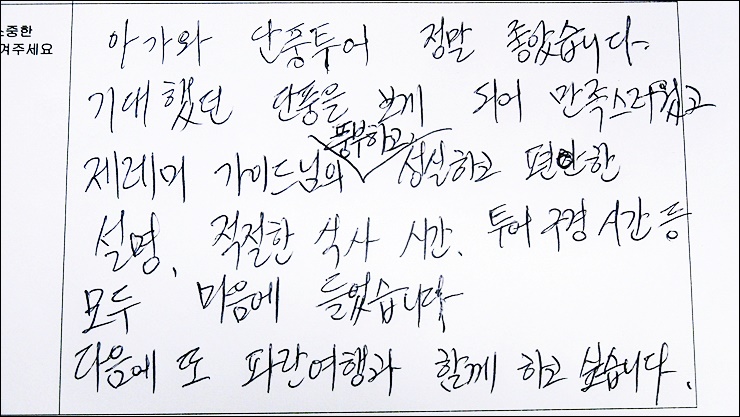 소중한
겨주세요
아가와 단풍투어 정말 좋았습니다.
기대했던 단풍을 보게 되어 만족스러웠고
풍부하고
제레미 가이드님의 성실하고 편안한
설명, 적절한 식사 시간, 투어 구경 시간 등
모두 마음에 들었습니다
다음에 또 파란여행과 함께 하고 싶습니다.